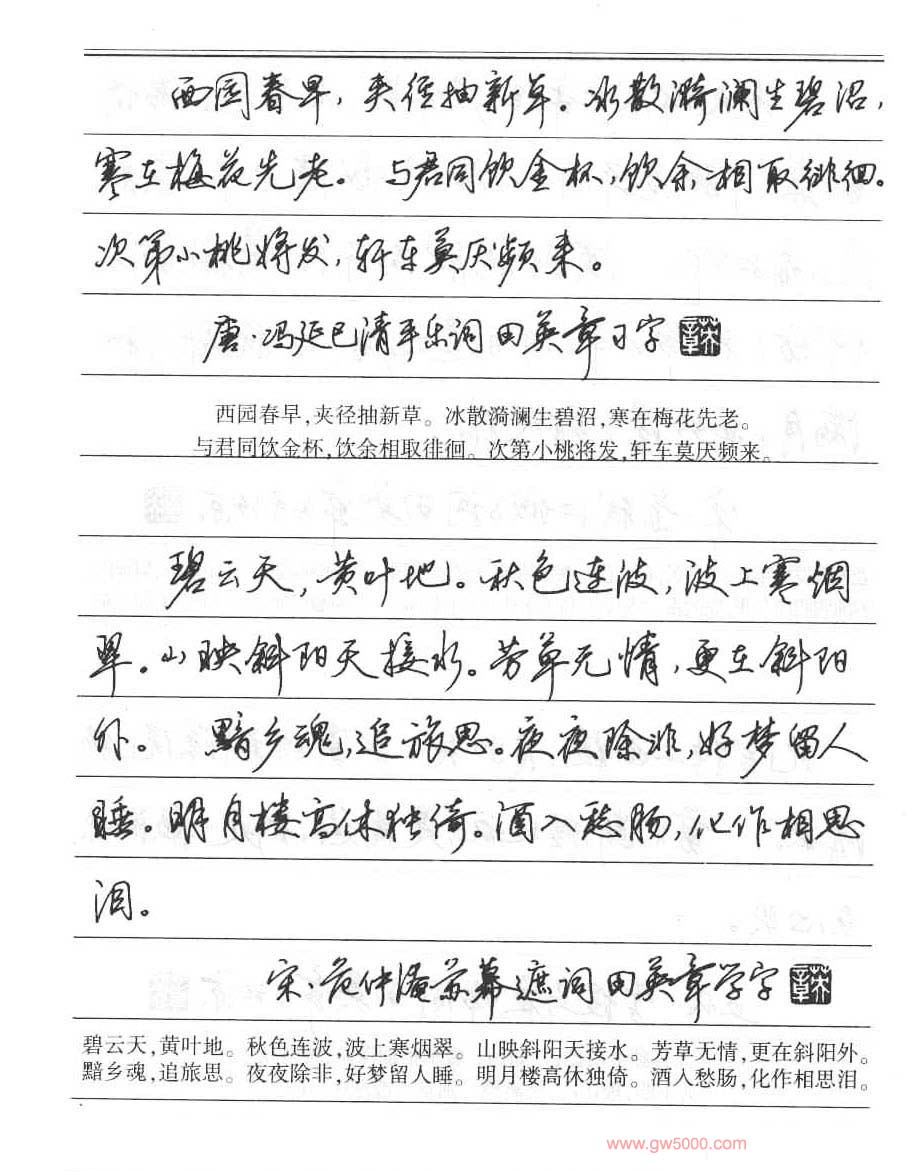 西园春早，夹径抽新草。冰散漪澜生碧沼，
寒在梅花先老。与君同饮金杯，饮余相取徘徊。
次第小桃将发，轩车莫厌频来。
唐·冯延巳清平乐词 田英章习字
英章
西园春早，夹径抽新草。冰散漪澜生碧沼，寒在梅花先老。
与君同饮金杯，饮余相取徘徊。次第小桃将发，轩车莫厌频来。
碧云天，黄叶地。秋色连波，波上寒烟
翠。山映斜阳天接水。芳草无情，更在斜阳
外。黯乡魂，追旅思。夜夜除非，好梦留人
睡。明月楼高休独倚。酒入愁肠，化作相思
泪。
宋·范仲淹苏幕遮词 田英章学字
英章
碧云天，黄叶地。秋色连波，波上寒烟翠。山映斜阳天接水。芳草无情，更在斜阳外。
黯乡魂，追旅思。夜夜除非，好梦留人睡。明月楼高休独倚。酒入愁肠，化作相思泪。
www.gw5000.com